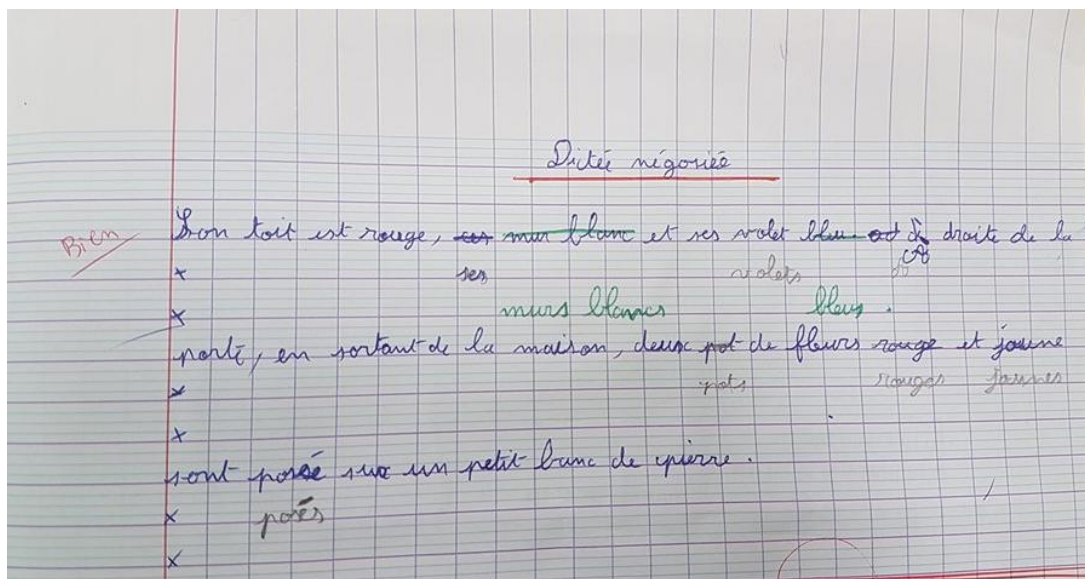 Dictée négociée
Bien
Son toit est rouge, ces mur blanc et ses volet bleu à droite de la
ses volets
murs blancs bleus.
porte, en sortant de la maison, deux pot de fleurs rouge et jaune
pots rouges jaunes
sont posé sur un petit banc de pierre.
posés